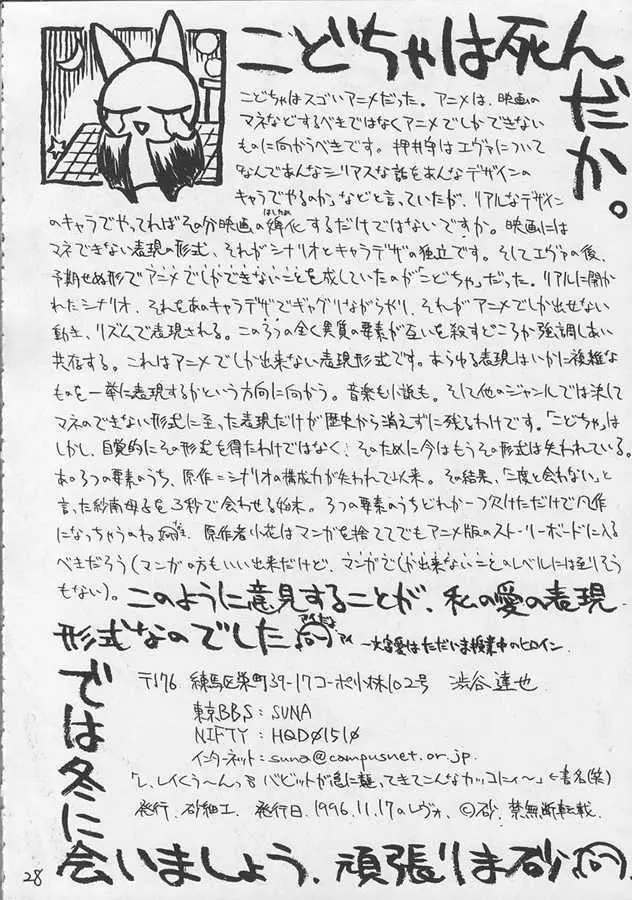 こどちゃは死んだか。
こどちゃはスゴいアニメだった。アニメは、映画の
マネなどするべきではなくアニメでしかできない
ものに向かうべきです。押井守はエヴァについて
「なんであんなシリアスな話をあんなデザインの
キャラでやるのか」などと言っていたが、リアルなデザイン
のキャラでやってればその分映画の化するだけではないですか。映画には
マネできない表現の形式、それがシナリオとキャラデザの独立です。そしてエヴァの後、
予期せぬ形でアニメでしかできないことを成していたのが「こどちゃ」だった。リアルに開か
れたシナリオ、それをあのキャラデザでギャグりながらやり、それがアニメでしか出せない
動き、リズムで表現される。この3つの全く異質の要素が互いを殺すどころか強調しあい
共存する。これはアニメでしか出来ない表現形式です。あらゆる表現はいかに複雑な
ものを一挙に表現するかという方向に向かう。音楽も小説も。そして他のジャンルでは決して
マネのできない形式に至った表現だけが歴史から消えずに残るわけです。「こどちゃ」は
しかし、自覚的にその形式を得たわけではなく、そのために今はもうその形式は失われている。
あの3つの要素のうち、原作=シナリオの構成力が失われて以来。その結果、「二度と会わない」と
言った紗南母子を3秒で会わせる始末。3つの要素のうちどれか一つ欠けただけで凡作
になっちゃうのね。原作者小花はマンガを捨ててでもアニメ版のストーリーボードに入る
べきだろう(マンガの方もいい出来だけど、マンガでしか出来ないことのレベルには至りそう
もない)。このように意見することが、私の愛の表現
形式なのでした アイ
大宮愛はただいま授業中のヒロイン
〒176 練馬区栄町39-17コーポ小林102号 渋谷達也
東京BBS: SUNA
NIFTY: HQD01510
インターネット: suna@campusnet.or.jp.
「し、レイくう〜んっ バビットが急に襲ってきてこんなカッコにィ〜」←書名(笑)
発行.砂細工. 発行日.1996.11.17のレヴォ. ©砂.禁無断転載.
では冬に
会いましょう、頑張りま砂
28